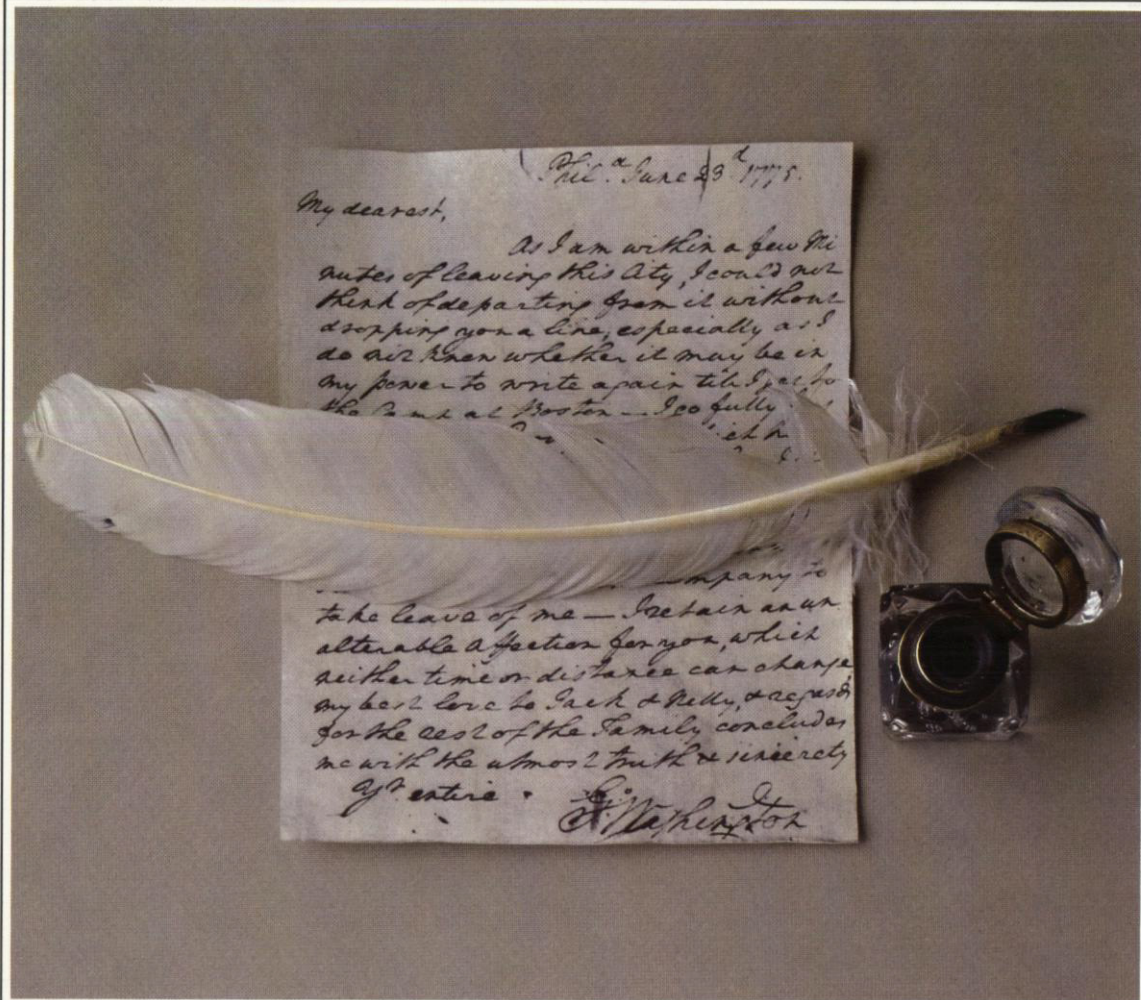 Phil.a June 23d 1775.
My dearest,
As I am within a few Mi
nutes of leaving this City, I could not
think of departing from it without
dropping you a line, especially as I
do not know whether it may be in
my power to write again till I get to
the Camp at Boston — I go fully
mpany to
take leave of me — I retain an un
alterable affection for you, which
neither time or distance can change
my best love to Jack & Nelly, & regard
for the rest of the Family concludes
me with the utmost truth & sincerety
Yr entire
Go Washington